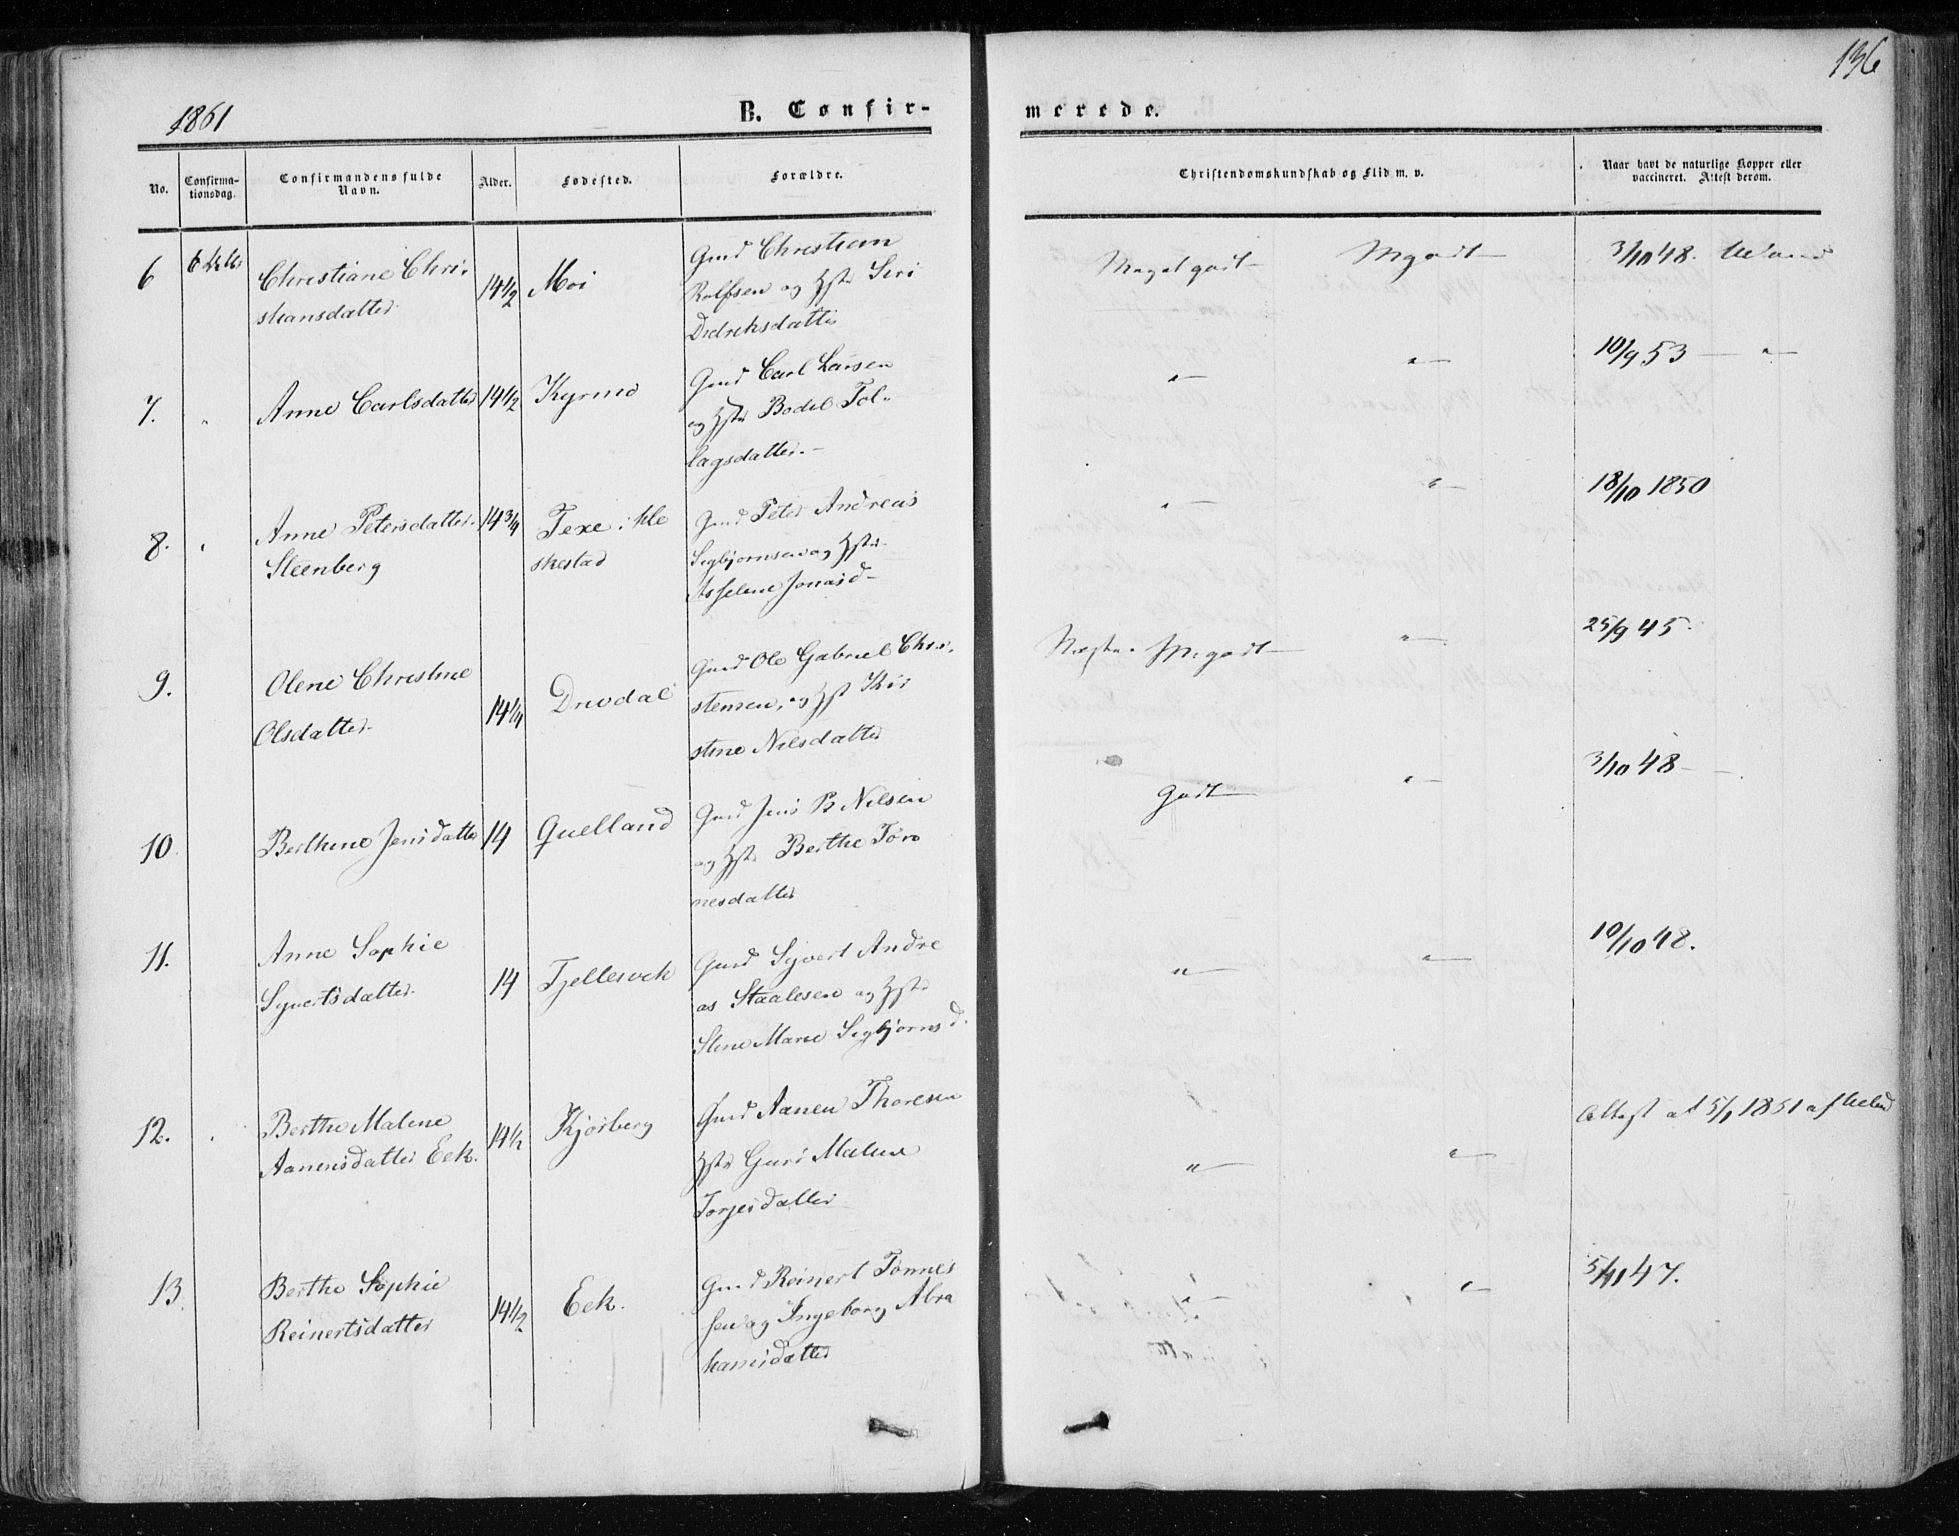 136
1861
B. Confir-
merede.
No.
Confirma-
tionsdag.
Confirmandens fulde
Navn.
Alder.
Fødested.
Forældre.
Christendomskundskab og Flid m. v.
Naar havt de naturlige Kopper eller
vaccineret. Attest derom.
6
Christiane Chri-
stiansdatter
14 1/2
Moi
Gmd Christian
Rolfsen og Hstr Siri
Didriksdatter
Meget godt
Mgodt
3/10 48.
7.
"
Anne Carlsdatter
14 1/2
Kyrmo
Gmd Carl Larsen
og Hstr Bodel Tol-
lagsdatter.
"
"
10/9 53 — "
8.
"
Anne Petersdatter
Steenberg
14 3/4
Texe i He
skestad
Gmd Peter Andreas
Sigbjørnsen og Hstr
Asselene Jonasd
"
"
18/10 1850
9.
Olene Christine
Olsdatter
14 1/4
Drivdal
Gmd Ole Gabriel Chri-
stensen, og Hst Kir
stine Nilsdatter
Næsten M godt
"
25/9 45.
10
Berthine Jensdatter
14
Quelland
Gmd Jens B Nilsen
og Hstr Berthe Tøn
nesdatter
Godt
"
3/10 48
11.
Anne Sophie
Syvertsdatter
14
Tjellesvik
Gmd Syvert Andre
as Staalesen og Hstr
Stine Marie Sigbjørnsd.
"
"
10/10 48.
12.
"
Berthe Malene
Aanensdatter Eek.
14 1/2
Kjørberg
Gmd Aanen Thoresen
Hstr Guri Malene
Torjesdatter
"
"
Attest af 5/1 1851 af
13
Berthe Sophie
Reinertsdatter
14 1/2
Eek.
Gmd Reinert Tønnes
sen og Ingeborg Abra
hamsdatter
"
"
5/11 47.